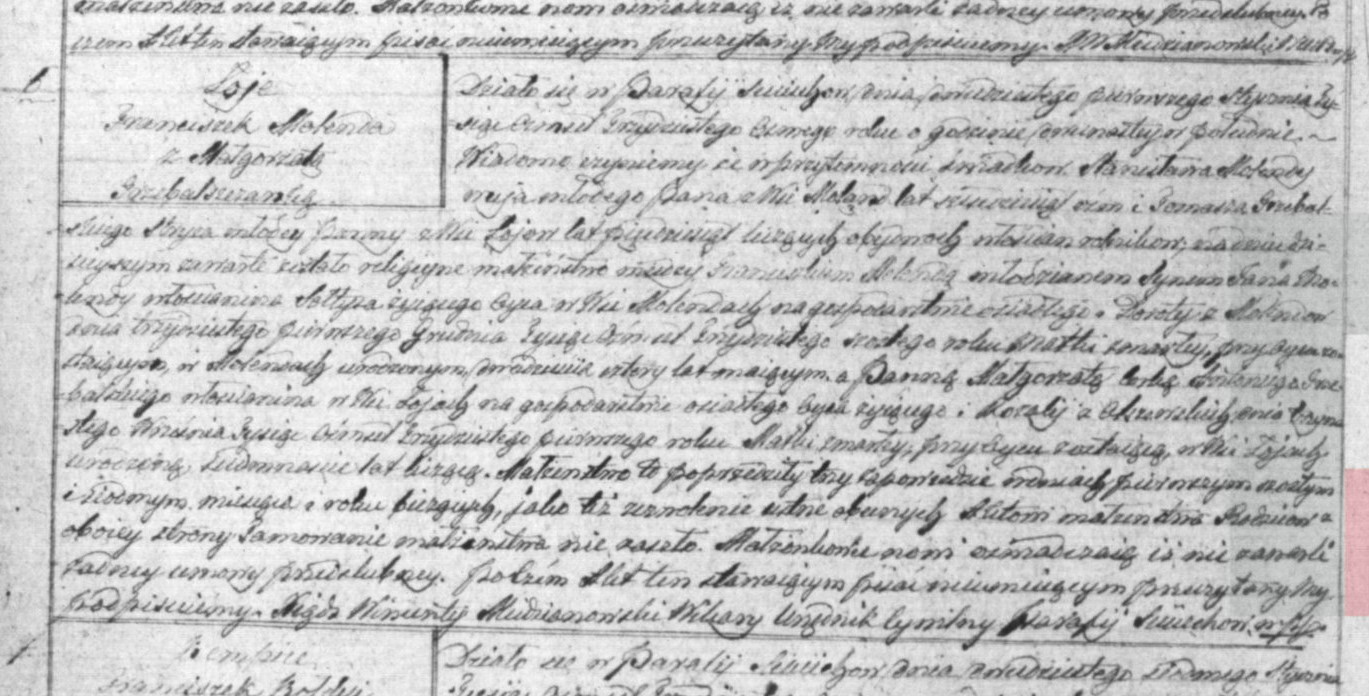 małżeństwa nie zaszło. Małżonkowie nowi oznaczaią iż nie zawarli żadney umowy przedślubney. Po
czem Akt ten stawaiącym pisać nieumieiącym przeczytany, My podpisaliśmy.
6
Łoje
Franciszek Molenda
z Małgorzatą
Grzebalszczanką
Działo się w Parafij Sieciechow, dnia dwudziestego pierwszego Stycznia Ty-
siąc Ośmset Trzydziestego Osmego roku o godzinie w południe.
Wiadomo czyniemy że w przytomności świadkow Stanisława Molendy
młodego Pana z Wsi Moland lat i Tomasza Grzebal-
skiego Stryia młodey Panny z Wsi Łojow lat pięćdziesiąt liczących obydwoch włościan rolnikow; na dniu dzi-
sieyszym zawarte zostało religijne małżeństwo między Franciszkiem Molendą młodzianem Synem Jana Mo-
lendy włościanina Sołtysa żyiącego Oyca w Wsi Molendach na gospodarstwie osiadłego i Doroty z Molendow
dnia trzydziestego pierwszego Grudnia Tysiąc Ośmset Trzydziestego szostego roku Matki zmarłey, przy Oycu zo-
staiącym, w Molendach urodzonym, dwadzieścia wtory lat maiącym. a Panną Małgorzatą Corką Antoniego Grze-
balskiego włościanina w Wsi Łojach na gospodarstwie osiadłego Oyca żyiącego i Rozalij z dnia
stego Września Tysiąc Ośmset Trzydziestego pierwszego roku Matki zmarłey, przy Oycu zostaiącą, w Wsi Łojach
urodzoną, siedmnaście lat liczącą. Małżeństwo to poprzedziły trzy zapowiedzie w dniach, pierwszym szostym
i siodmym miesiąca i roku bieżących, jako też zezwolenie ustne obecnych Aktowi małżeństwa Rodzicow z
oboiey strony Tamowanie małżeństwa nie zaszło. Małżonkowie nowi oznaczaią iż nie zawarli
żadney umowy przedślubney. Poczem Akt ten stawaiącym pisać nieumieiącym przeczytany, My
podpisaliśmy. Xiądz Wincenty Wikary Urzędnik Cywilny Parafij Sieciechow.
7
Franciszek
Działo się w Parafij Sieciechow, dnia dwudziestego siodmego Stycznia